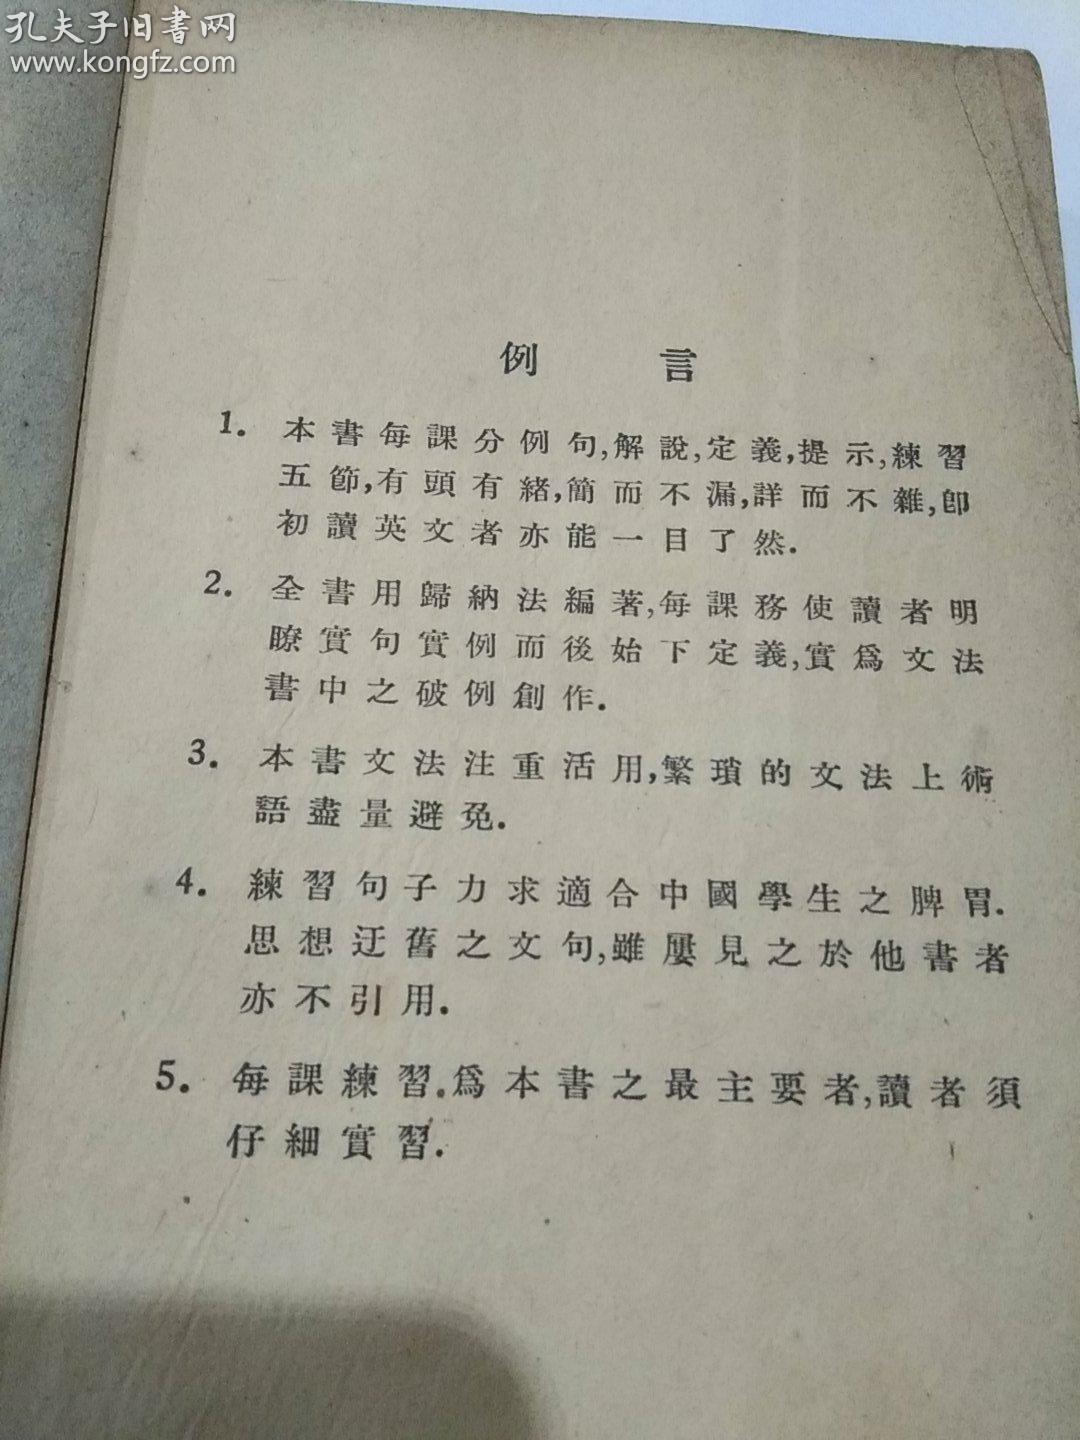 孔夫子旧書网
www.kongfz.com
例言
1. 本書每課分例句,解說,定義,提示,練習
五節,有頭有緒,簡而不漏,詳而不雜,卽
初讀英文者亦能一目了然.
2. 全書用歸納法編著,每課務使讀者明
瞭實句實例而後始下定義,實爲文法
書中之破例創作.
3. 本書文法注重活用,繁瑣的文法上術
語盡量避免.
4. 練習句子力求適合中國學生之脾胃.
思想迂舊之文句,雖屢見之於他書者
亦不引用.
5. 每課練習.爲本書之最主要者,讀者須
仔細實習.